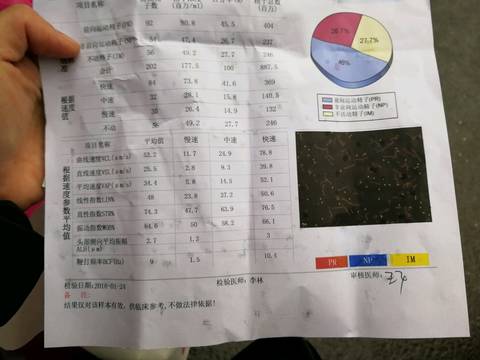 项目名称
前向运动精子(PR) 92 80.8 45.5 404
非前向运动精子(NP) 54 47.4 26.7 237
不活动精子(IM) 56 49.2 27.7 246
合计 202 177.5 100 887.5
快速 84 73.8 41.6 369
中速 32 28.1 15.8 140.5
慢速 30 26.4 14.9 132
不动 56 49.2 27.7 246
根据速度
26.7%
27.7%
46%
前向运动精子(PR)
非前向运动精子(NP)
不活动精子(IM)
根据速度参数平均值
项目名称 平均值 慢速 中速 快速
曲线速度VCL(μm/s) 11.7 24.9 78.8
直线速度VSL(μm/s) 2.8 9.3 39.8
平均速度VAP(μm/s) 34.4 5.8 14.5 52.1
线性指数LIN% 48 23.8 37.2 50.6
直性指数STR% 74.3 47.7 63.9 76.5
振动指数WOB% 64.6 50 58.2 66.1
头部侧向平均振幅ALH(μm) 2.7 1.2 3
鞭打频率BCF(Hz) 9 1.5 10.4
PR NP IM
检验日期:2018-01-24 检验医师:李林 审核医师:
备 注:
结果仅对该样本有效，供临床参考，不做法律依据!